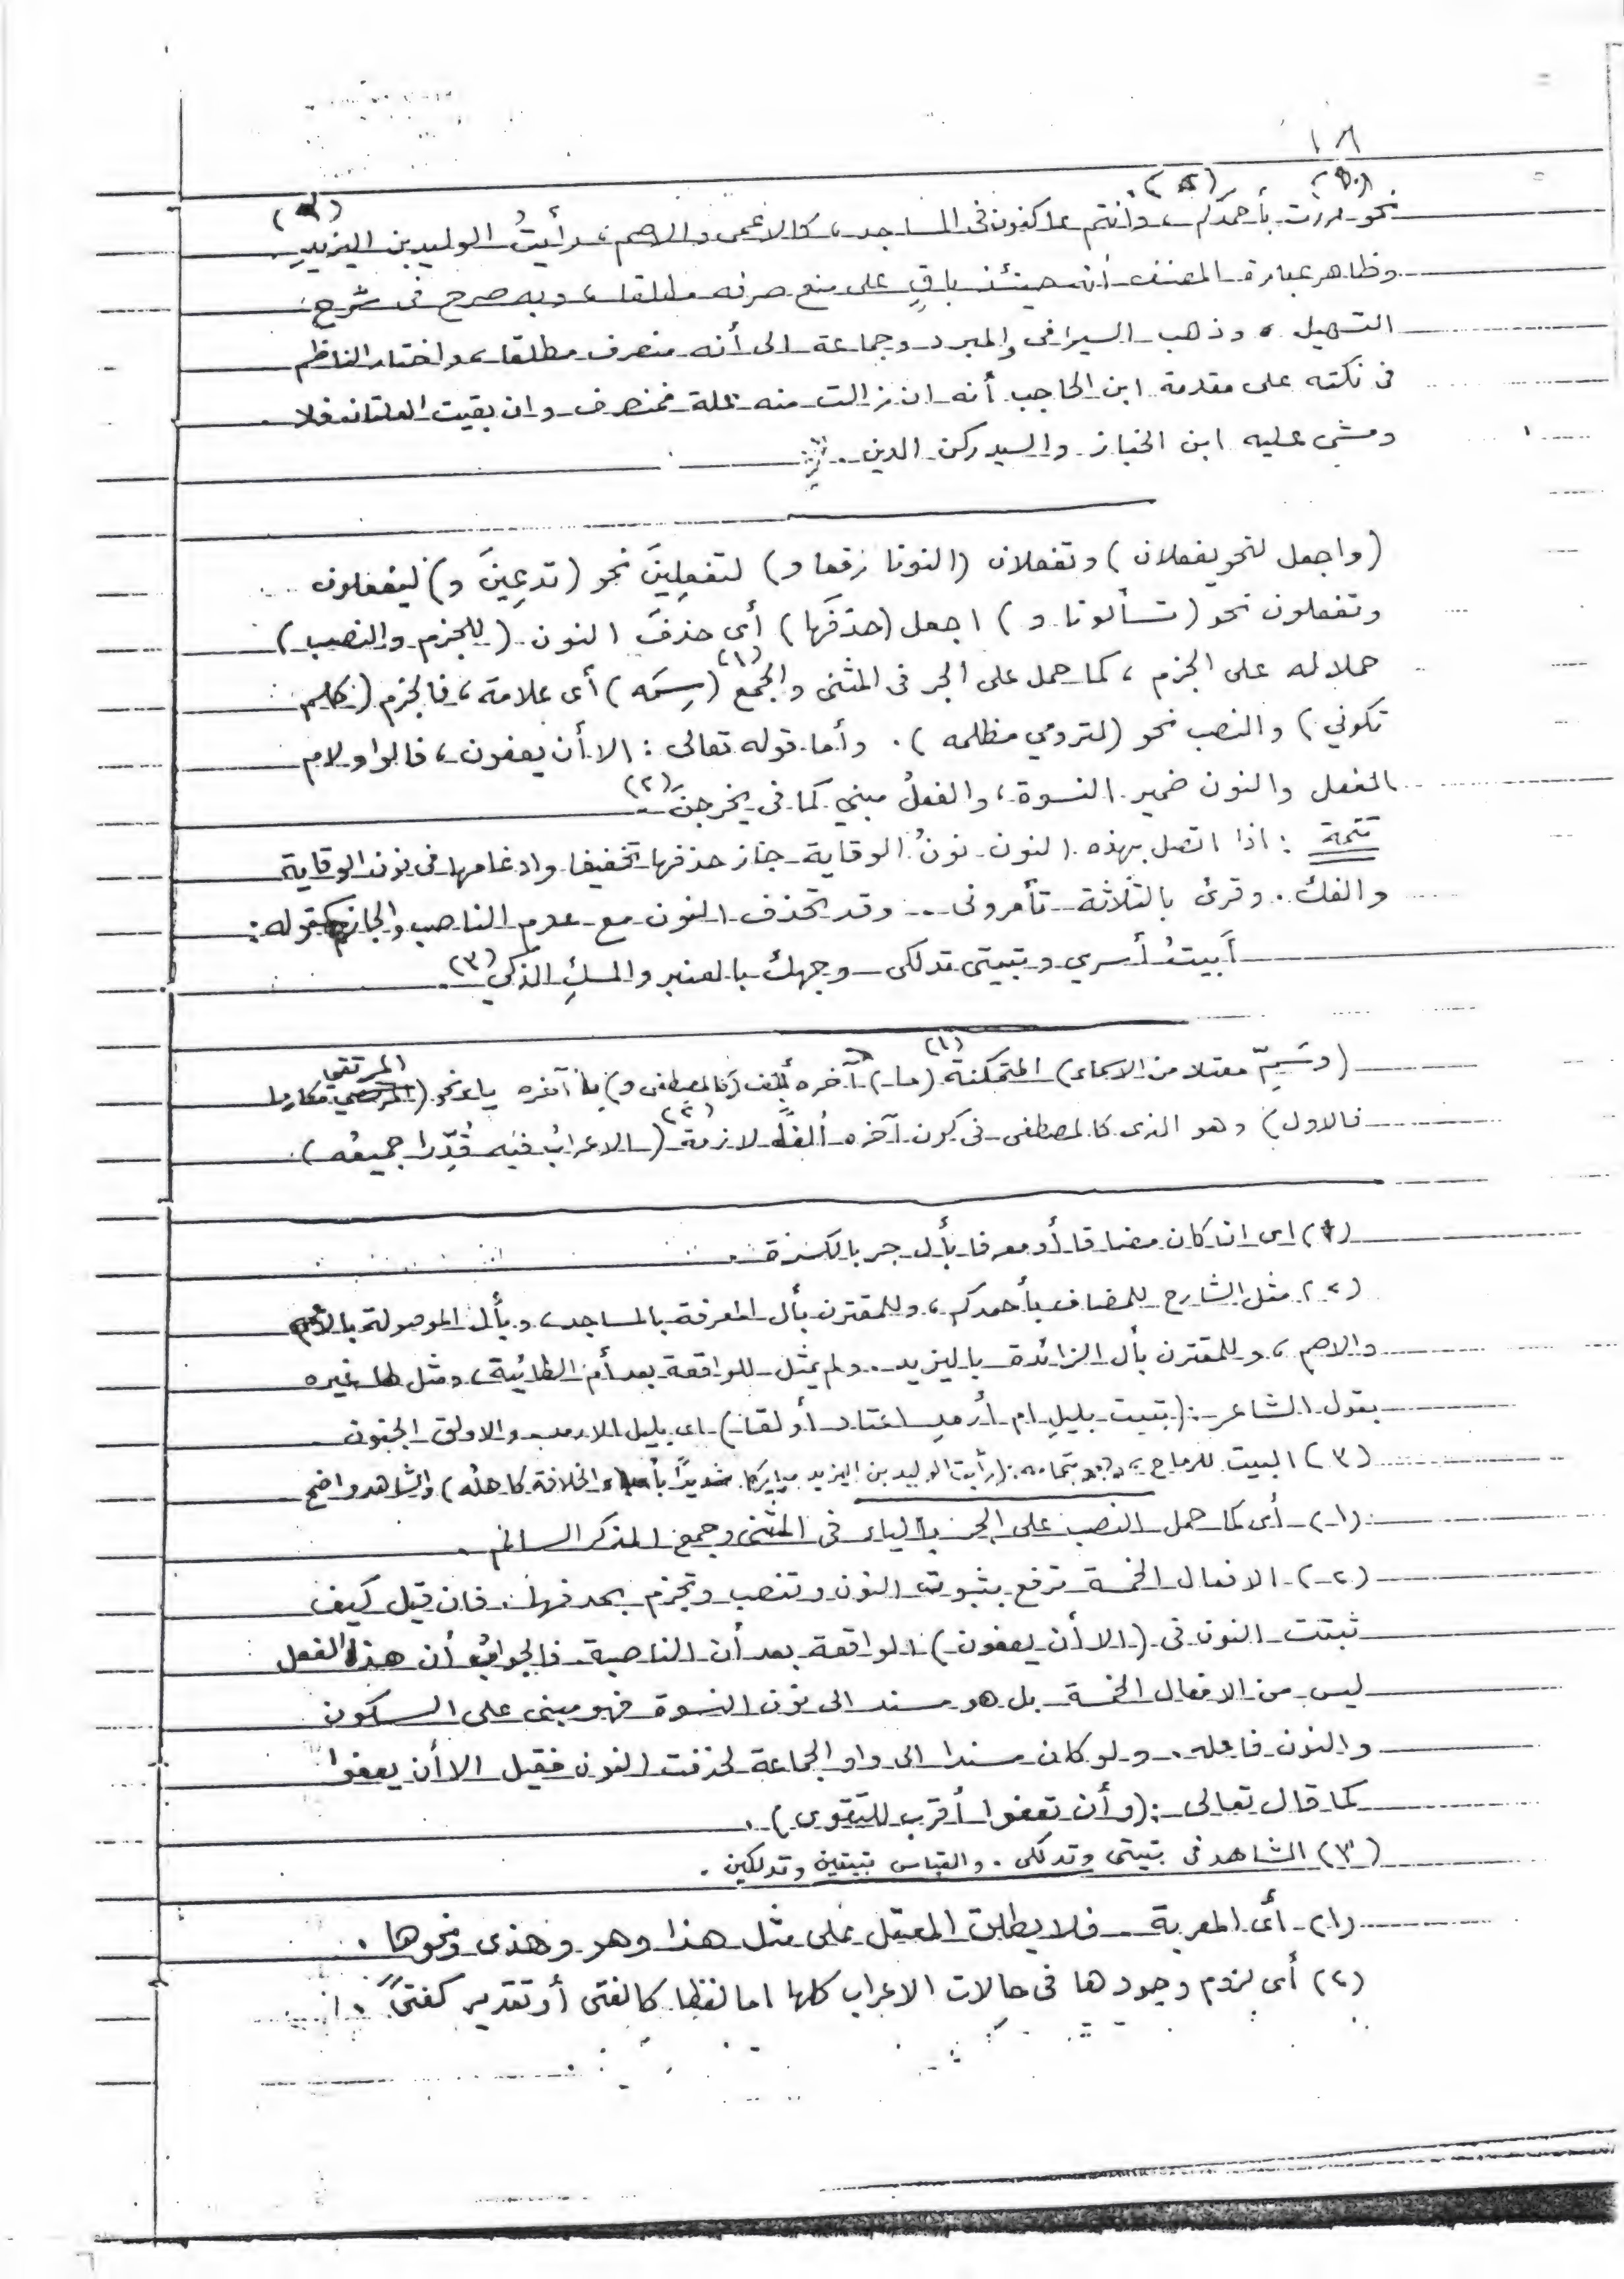 ١٨
نحو مررت بأحمدكم، وانتم عاكفون فى المساجد، كالاعمى والاصم، رأيتُ الوليد بن اليزيدِ
وظاهر عبارة المصنف أنه حينئذ باقٍ على منع صرفه مطلقا، وبه صرح فى شرح
التسهيل، وذهب السيرافى والمبرد وجماعة الى أنه منصرف مطلقا، واختار الناظم
فى نكته على مقدمة ابن الحاجب أنه ان زالت منه علة فمنصرف وان بقيت العلتان فلا
ومشى عليه ابن الخباز والسيد ركن الدين.
(واجعل لنحو يفعلان) وتفعلان (النونا رفعا و) لتفعلِينَ نحو (تدعِينَ و) ليفعلون
وتفعلون نحو (تسألونا و) اجعل (حذفَها) أى حذفَ النون (للجزم والنصب)
حملا له على الجزم، كما حمل على الجر فى المثنى والجمع (١) (سِمَه) أى علامة، فالجزم (كلم
تكوني) والنصب نحو (لترومي مظلمه). وأما قوله تعالى: الا أن يعفون، فالواو لام
الفعل والنون ضمير النسوة، والفعلُ مبني كما فى يخرجنَ (٢).
تتمة: اذا اتصل بهذه النون نونُ الوقاية جاز حذفها تخفيفا وادغامها فى نون الوقاية
والفك. وقرئ بالثلاثة تأمرونى ... وقد تحذف النون مع عدم الناصب والجازم كقوله:
أَبيتُ أسري وتبيتى تدلكى وجهك بالعنبر والمسكِ الذكي (٣).
(وسَمِّ معتلا من الاسماء) المتمكنة (١) (ما) آخره ألف (كالمصطفى و) ما آخره ياء نحو (المرتقي مكارما
فالاول) وهو الذى كالمصطفى فى كون آخره ألفًا لازمة (٢) (الاعرابُ فيه قُدِّرا جميعُه).
(١) اى ان كان مضافا أو معرفا بأل جر بالكسرة.
(٢) مثل الشارح للمضاف بأحمدكم، وللمقترن بأل المعرفة بالمساجد، وبأل الموصولة بالاعمى
والاصم، وللمقترن بأل الزائدة باليزيد. ولم يمثل للواقعة بعد أم الطائية، ومثل لها غيره
بقول الشاعر: (تبيت بليل ام أرمد اعتاد أولقا) اى بليل الارمد والاولق الجنون
(٣) البيت للرماح، وتمامه: (رأيت الوليد بن اليزيد مباركا شديدًا بأعباء الخلافة كاهله) والشاهد واضح
(١) أى كما حمل النصب على الجر بالياء فى المثنى وجمع المذكر السالم.
(٢) الافعال الخمسة ترفع بثبوت النون وتنصب وتجزم بحذفها. فان قيل كيف
ثبتت النون فى (الا أن يعفون) الواقعة بعد أن الناصبة فالجواب أن هذا الفعل
ليس من الافعال الخمسة بل هو مسند الى نون النسوة فهو مبنى على السكون
والنون فاعله. ولو كان مسندا الى واو الجماعة لحذفت النون فقيل الا أن يعفوا
كما قال تعالى: (وأن تعفوا أقرب للتقوى).
(٣) الشاهد فى تبيتى وتدلكى. والقياس تبيتين وتدلكين.
(١) أى المعربة فلا يطلق المعتل على مثل هذا وهو وهذى ونحوها.
(٢) أى لزوم وجودها فى حالات الاعراب كلها اما لفظا كالفتى أو تقدير كفتىً.